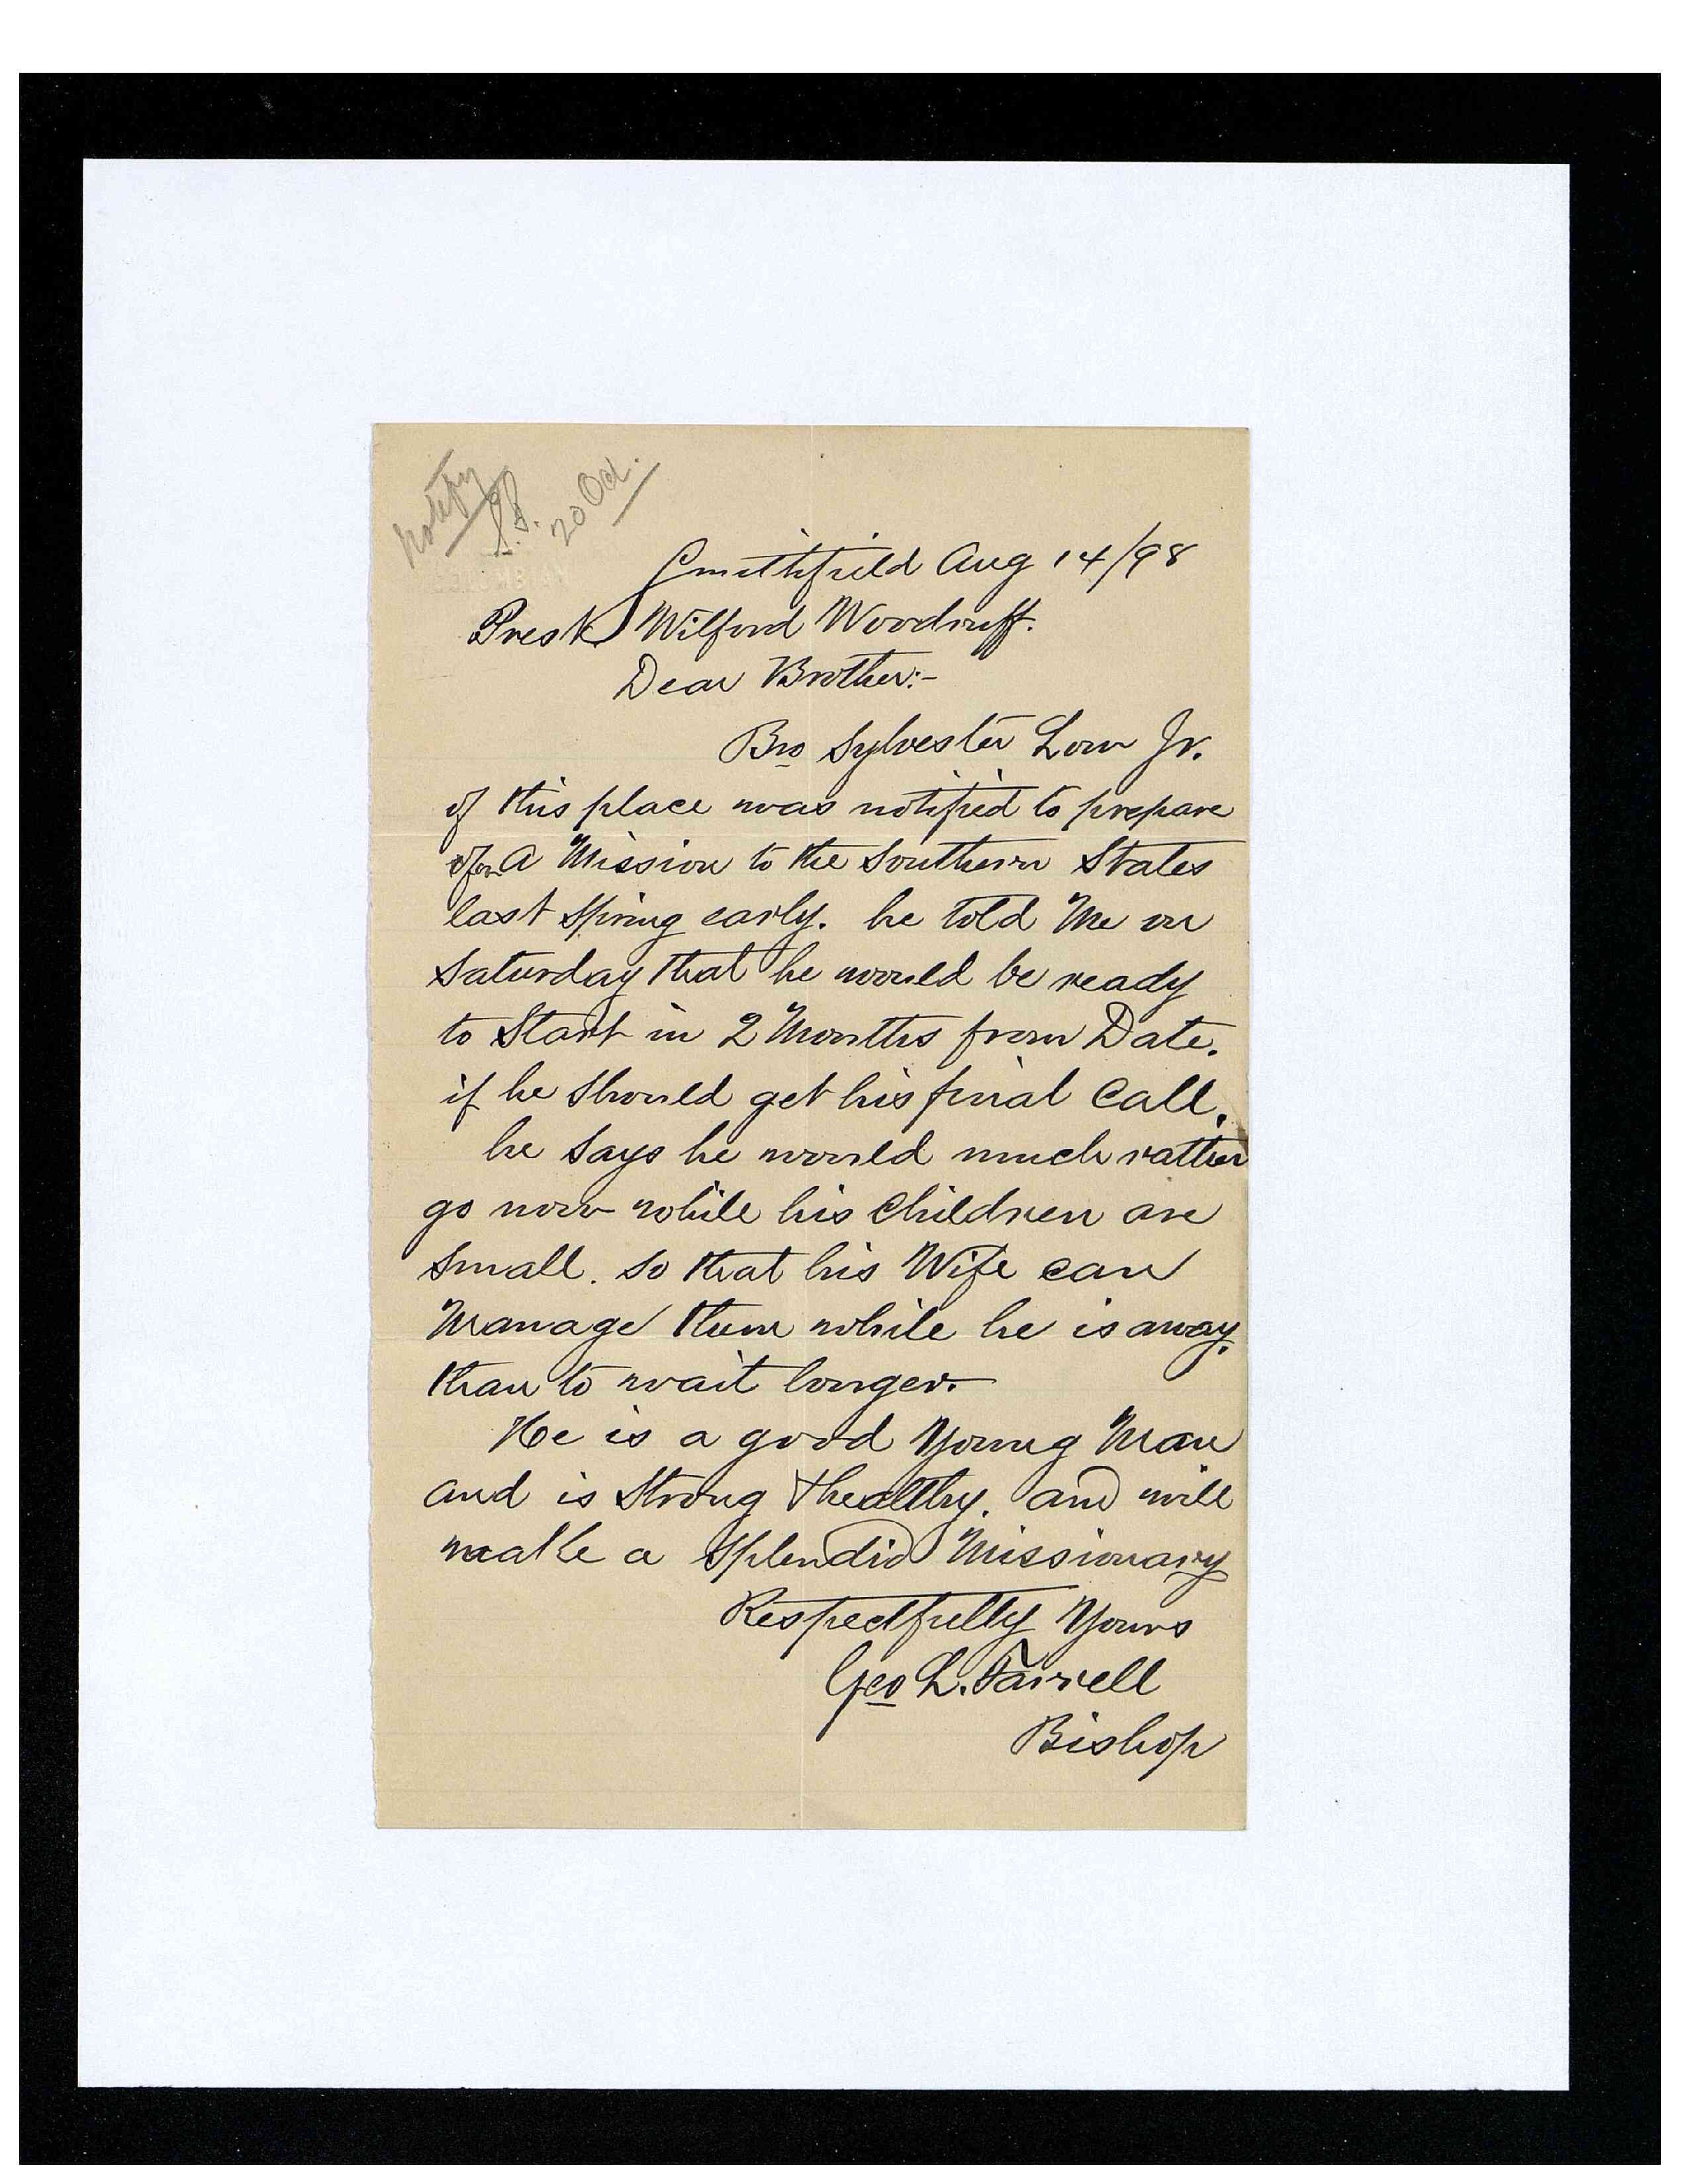 notify
S.S.
20 Oct.
Smithfield Aug 14/98
Prest Wilford Woodruff.
Dear Brother:-
Bro Sylvester Low Jr.
of this place was notified to prepare
for A Mission to the Southern States
last Spring early. he told Me on
Saturday that he would be ready
to Start in 2 Months from Date.
if he Should get his final Call.
he Says he would much rather
go now while his Children are
Small. So that his Wife can
Manage them while he is away.
than to wait longer.
He is a good Young Man
and is Strong & healthy. and will
make a Splendid Missionary
Respectfully Yours
Geo L. Farrell
Bishop